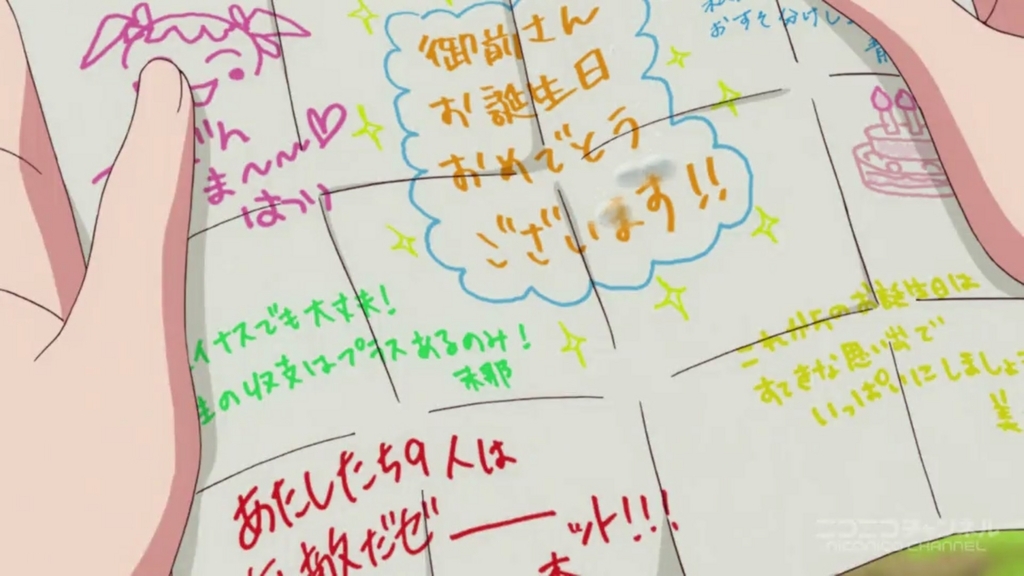 御前さん
お誕生日
おめでとう
ございます!!
おすそ分けし
ま～～～♡
はつり
イナスでも大丈夫!
の収支はプラスあるのみ!
これからのお誕生日は
すてきな思い出で
いっぱいにしましょう
美
あたしたち9人は
敵だゼ―――ット!!!
ニコニコチャンネル
NICONICO CHANNEL